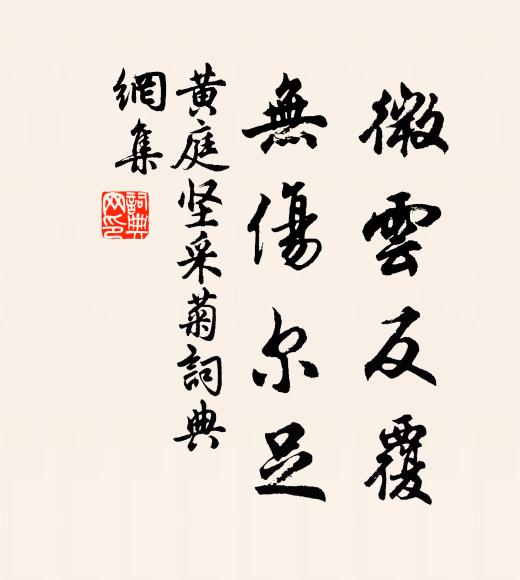 微雲反覆
無傷尔足
黄庭坚采菊詞典
網集
詞典
网印